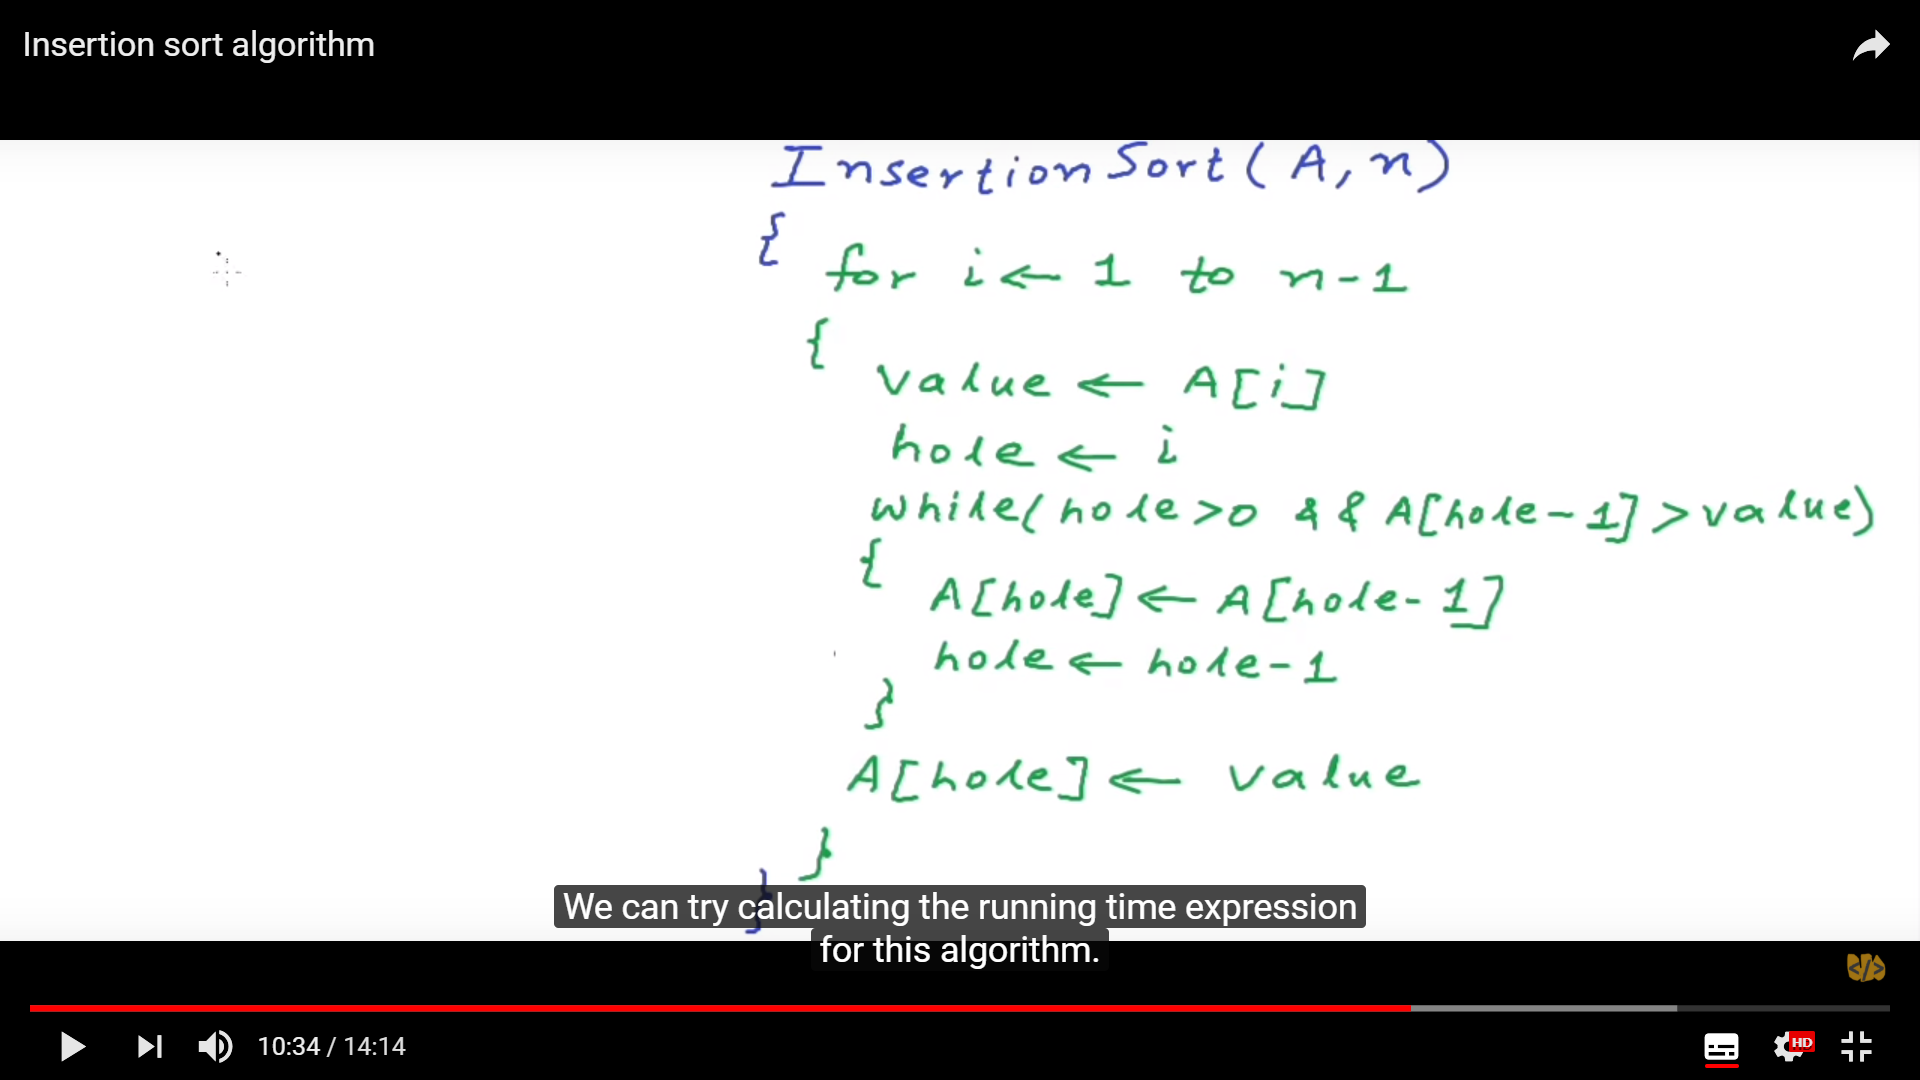 Insertion sort algorithm
InsertionSort(A,n)
{
for i ← 1 to n-1
{
value ← A[i]
hole ← i
while(hole>0 && A[hole-1]>value)
{
A[hole] ← A[hole-1]
hole ← hole-1
}
A[hole] ← value
}
}
We can try calculating the running time expression
for this algorithm.
</>
10:34 / 14:14
HD